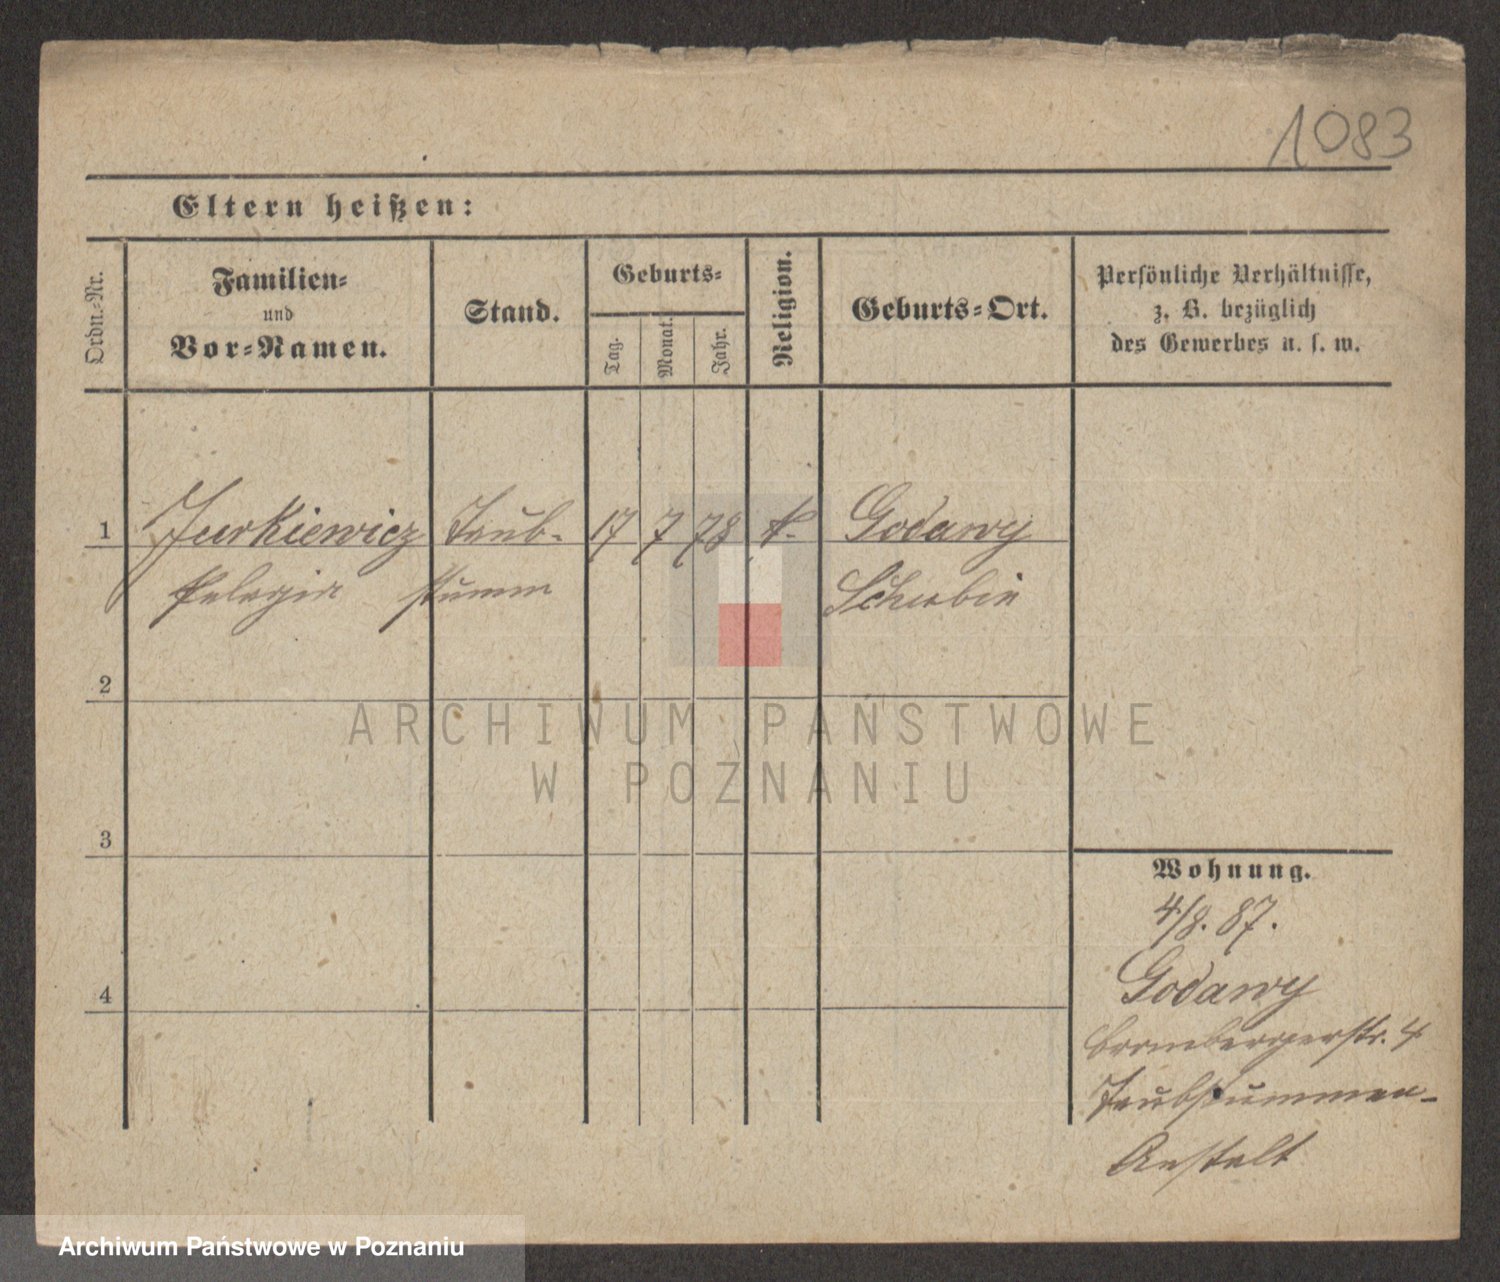 1083
Eltern heißen:
Ordn.-Nr.
Familien-
und
Vor-Namen.
Stand.
Geburts-
Tag.
Monat.
Jahr.
Religion.
Geburts-Ort.
Persönliche Verhältnisse,
z. B. bezüglich
des Gewerbes u. s. w.
1 Jurkiewicz Taub- 17 7 78 k. Godawy
Pelagia stumm Schubin
2
3
4
Wohnung.
4/8. 87.
Godawy
Brombergerstr. 4
Taubstummen-
Anstalt
ARCHIWUM PAŃSTWOWE
W POZNANIU
Archiwum Państwowe w Poznaniu